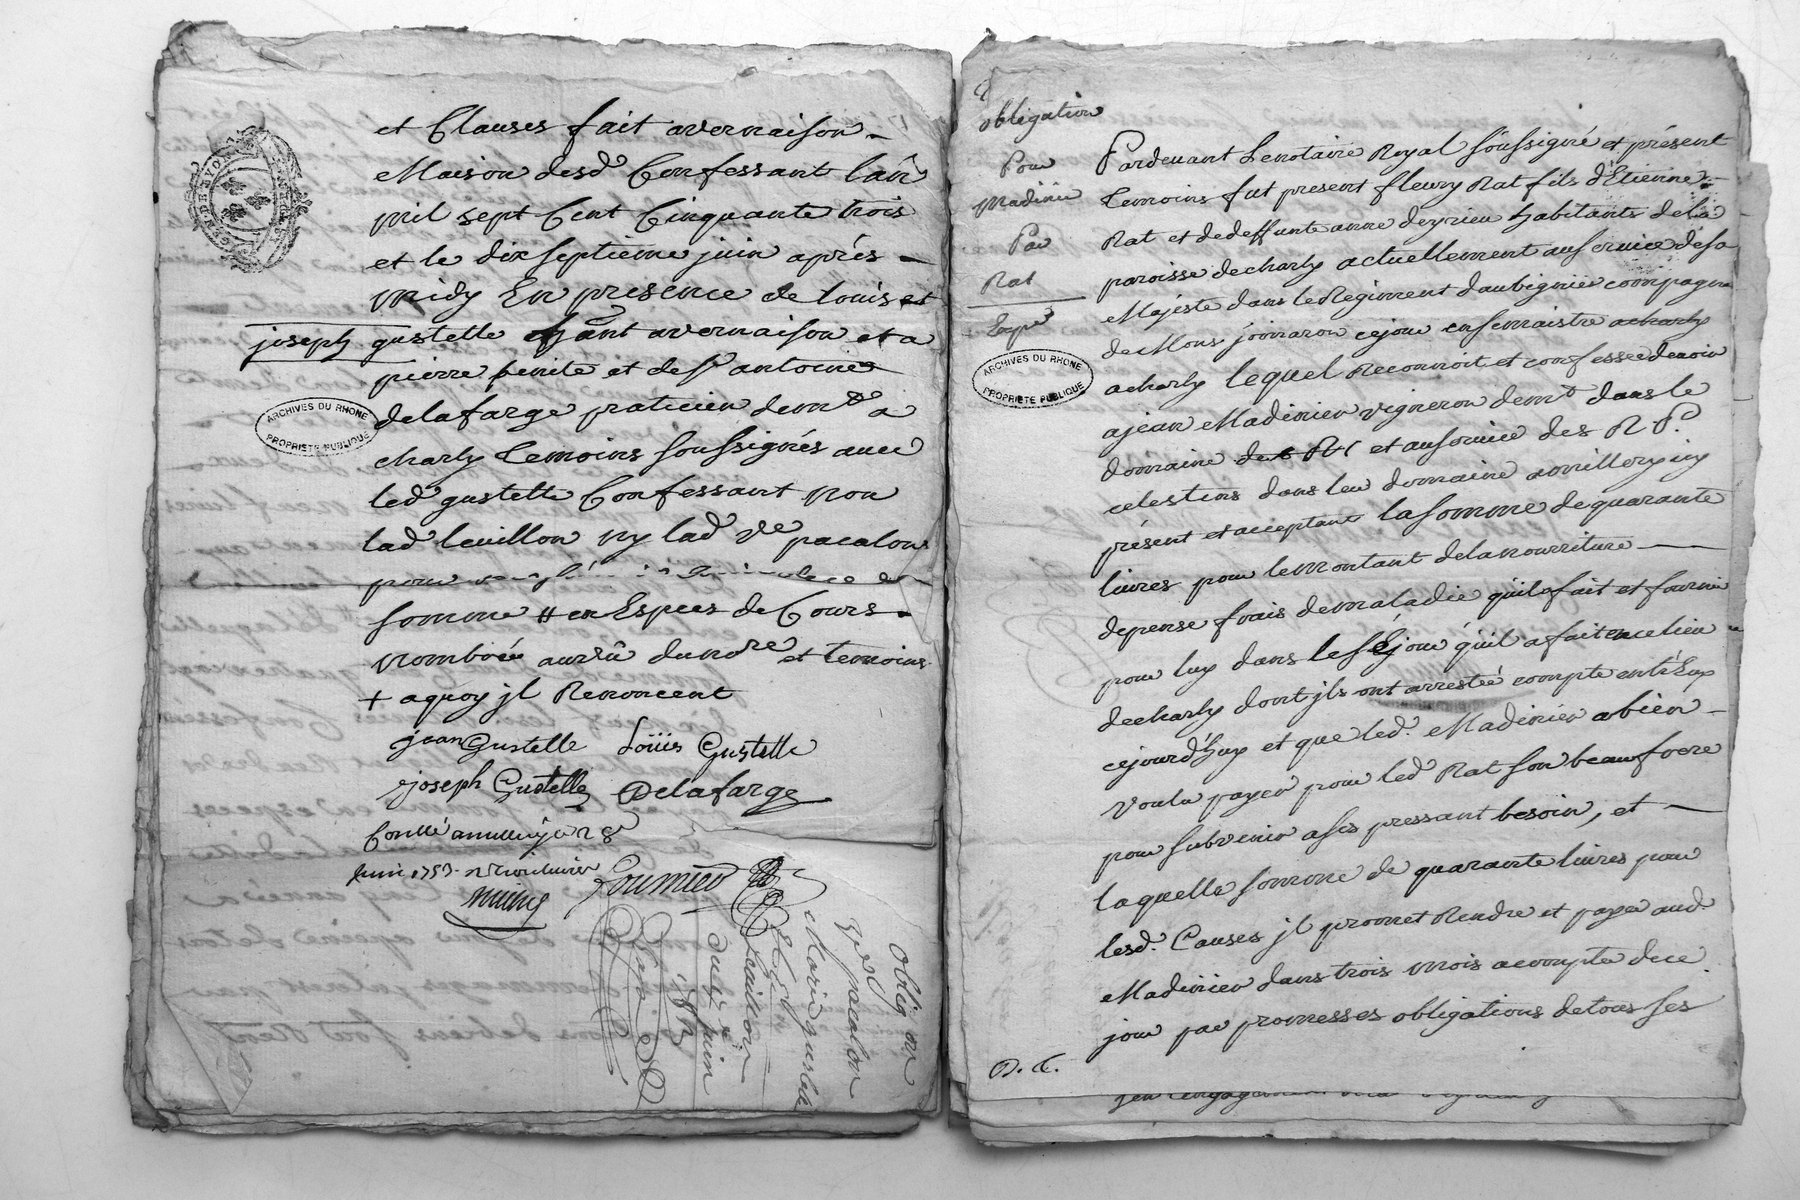 et Clauses fait avernaison
Maison desd Confessant lan
mil sept Cent Cinquante trois
et le dix septieme juin après
midy En presence de louis et
joseph gustelle avernaison et a
pierre benite et de Sr antoine
delafarge praticien demt a
charly temoins soussignés avec
led gustelle Confessant non
lad leuillon ny lad ve pacalon
pour
somme # en Espees de Cours
nombrée auvû dud nore et temoins
+ aquoy jl Renoncent
jean Gustelle Loüis Gustelle
joseph Gustelle Delafarge
juin 1753
fournier
Oblig on
ve pacalon
Marie gustelle
leuillon
du 17 juin
1753
GEN DE LYON
ARCHIVES DU RHONE
PROPRIETE PUBLIQUE
obligation
Pour
Madinier
Par
Rat
Expé
ARCHIVES DU RHONE
PROPRIETE PUBLIQUE
Pardevant Lenotaire Royal soussigné et présent
temoins fut present fleury Rat fils d'Etienne
Rat et dedeffunte anne deyrieu habitants dela
paroisse decharly actuellement auservice desa
Majeste dans leRegiment daubigniée compagnie
deMons joinaron cejour ensemaistre acharly
acharly lequel Reconnoit et confesse devoir
ajean Madinier vigneron demt dans le
domaine et auservice des R P.
celestins dans leur domaine amillery icy
présent et acceptant lasomme dequarante
livres pour lemontant delanourriture
depense frais demaladie quila fait et fourni
pour luy dans leséjour quil afait encelieu
decharly dont jls ont arrestée compte entr'eux
cejourd'huy et que led. Madinier abien
voulu payer pour led Rat son beaufrere
pour subvenir ases pressant besoin, et
laquelle somme de quarante livres pour
lesd. Causes jl promet Rendre et payer aud.
Madinier dans trois mois acompte dece
jour par promesses obligations detous ses
D. C.